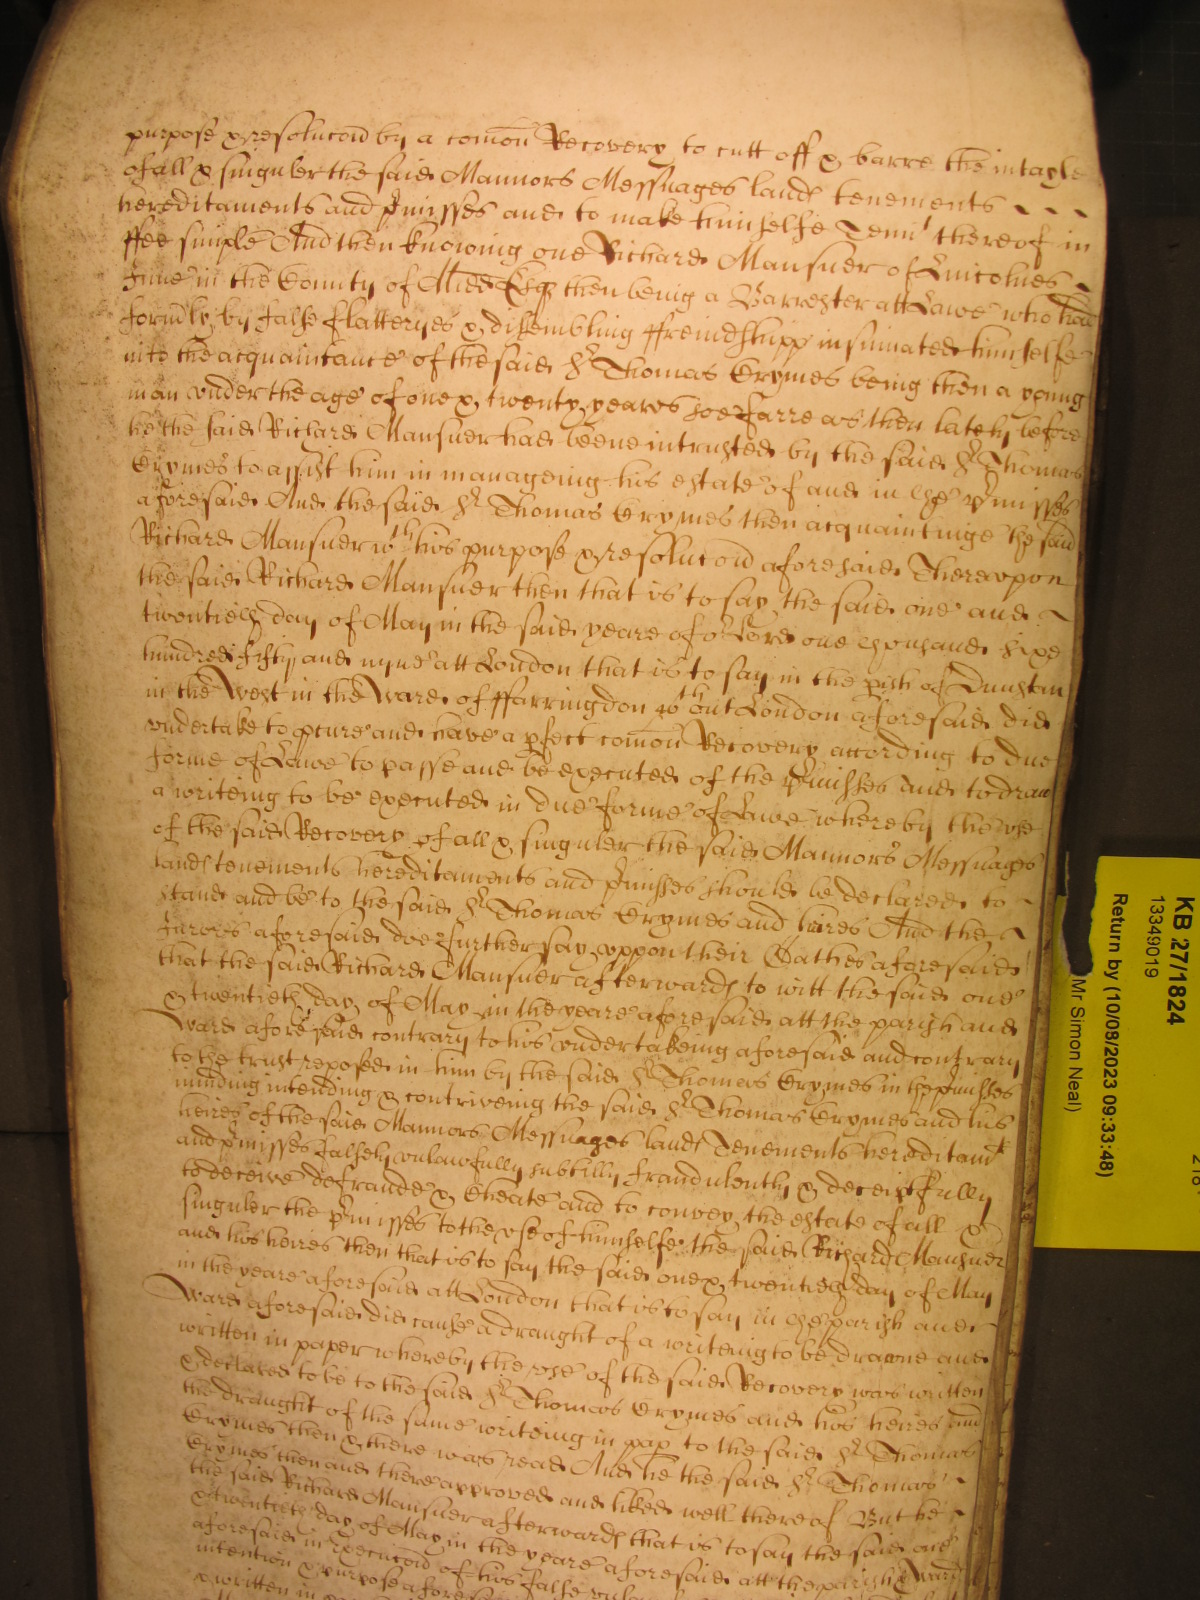 purpose & resolucon by a comon Recovery to cutt off & barre the intayle
of all & singuler the said Mannors Messuages lands tenements
hereditaments and pmisses and to make himselfe Tennt thereof in
ffee simple And then knowing one Richard Mansuer of Lincolnes
Inne in the County of Midd Esqr then being a Barrester att Lawe who had
formdly by false flatteryes & dissembling ffreindshipp insinuated himselfe
into the acquaintance of the said Sr Thomas Grymes being then a young
man under the age of one & twenty yeares soe farre as then lately before
he the said Richard Mansuer had beene intrusted by the said Sr Thomas
Grymes to assist him in manageing his estate of and in the pmisses
aforesaid And the said Sr Thomas Grymes then acquaintinge the said
Richard Mansuer wth his purpose & resolucon aforesaid Thereupon
the said Richard Mansuer then that is to say the said one and
twentieth day of May in the said yeare of or Lord one thousand sixe
hundred fifty and nyne att London that is to say in the pish of Dunstan
in the West in the Ward of ffarringdon wthout London aforesaid did
undertake to pcure and have a pfect comon Recovery according to due
forme of Lawe to passe and be executed of the pmisses and to draw
a writeing to be executed in due forme of Lawe whereby the use
of the said Recovery of all & singuler the said Mannors Messuages
lands tenements hereditaments and pmisses should be declared to
stand and be to the said Sr Thomas Grymes and heires And the
Jurors aforesaid doe further say uppon their Oathes aforesaid
that the said Richard Mansuer afterwards to witt the said one
& twentieth day of May in the yeare aforesaid att the parish and
Ward aforesaid contrary to his undertakeing aforesaid and contrary
to the trust reposed in him by the said Sr Thomas Grymes in the pmisses
minding intending & contriveing the said Sr Thomas Grymes and his
heires of the said Mannors Messuages lands Tenements hereditamts
and pmisses falsely unlawfully subtilly fraudulently & deceiptfully
to deceive defraude & Cheate and to convey the estate of all &
singuler the pmisses to the use of himselfe the said Richard Mansuer
and his heires then that is to say the said one & twentieth day of May
in the yeare aforesaid att London that is to say in the parish and
Ward aforesaid did cause a draught of a writeing to be drawne and
written in paper whereby the use of the said Recovery was written
& declared to be to the said Sr Thomas Grymes and his heires and
the draught of the same writeing in pap to the said Sr Thomas
Grymes then & there was read And he the said Sr Thomas
Grymes then and there approved and liked well thereof But he
the said Richard Mansuer afterwards that is to say the said one
& twentieth day of May in the yeare aforesaid att the parish & Ward
aforesaid in execucon of his false
intention & purpose
& written in
KB 27/1824
13349019
Return by (10/08/2023 09:33:48)
Mr Simon Neal)